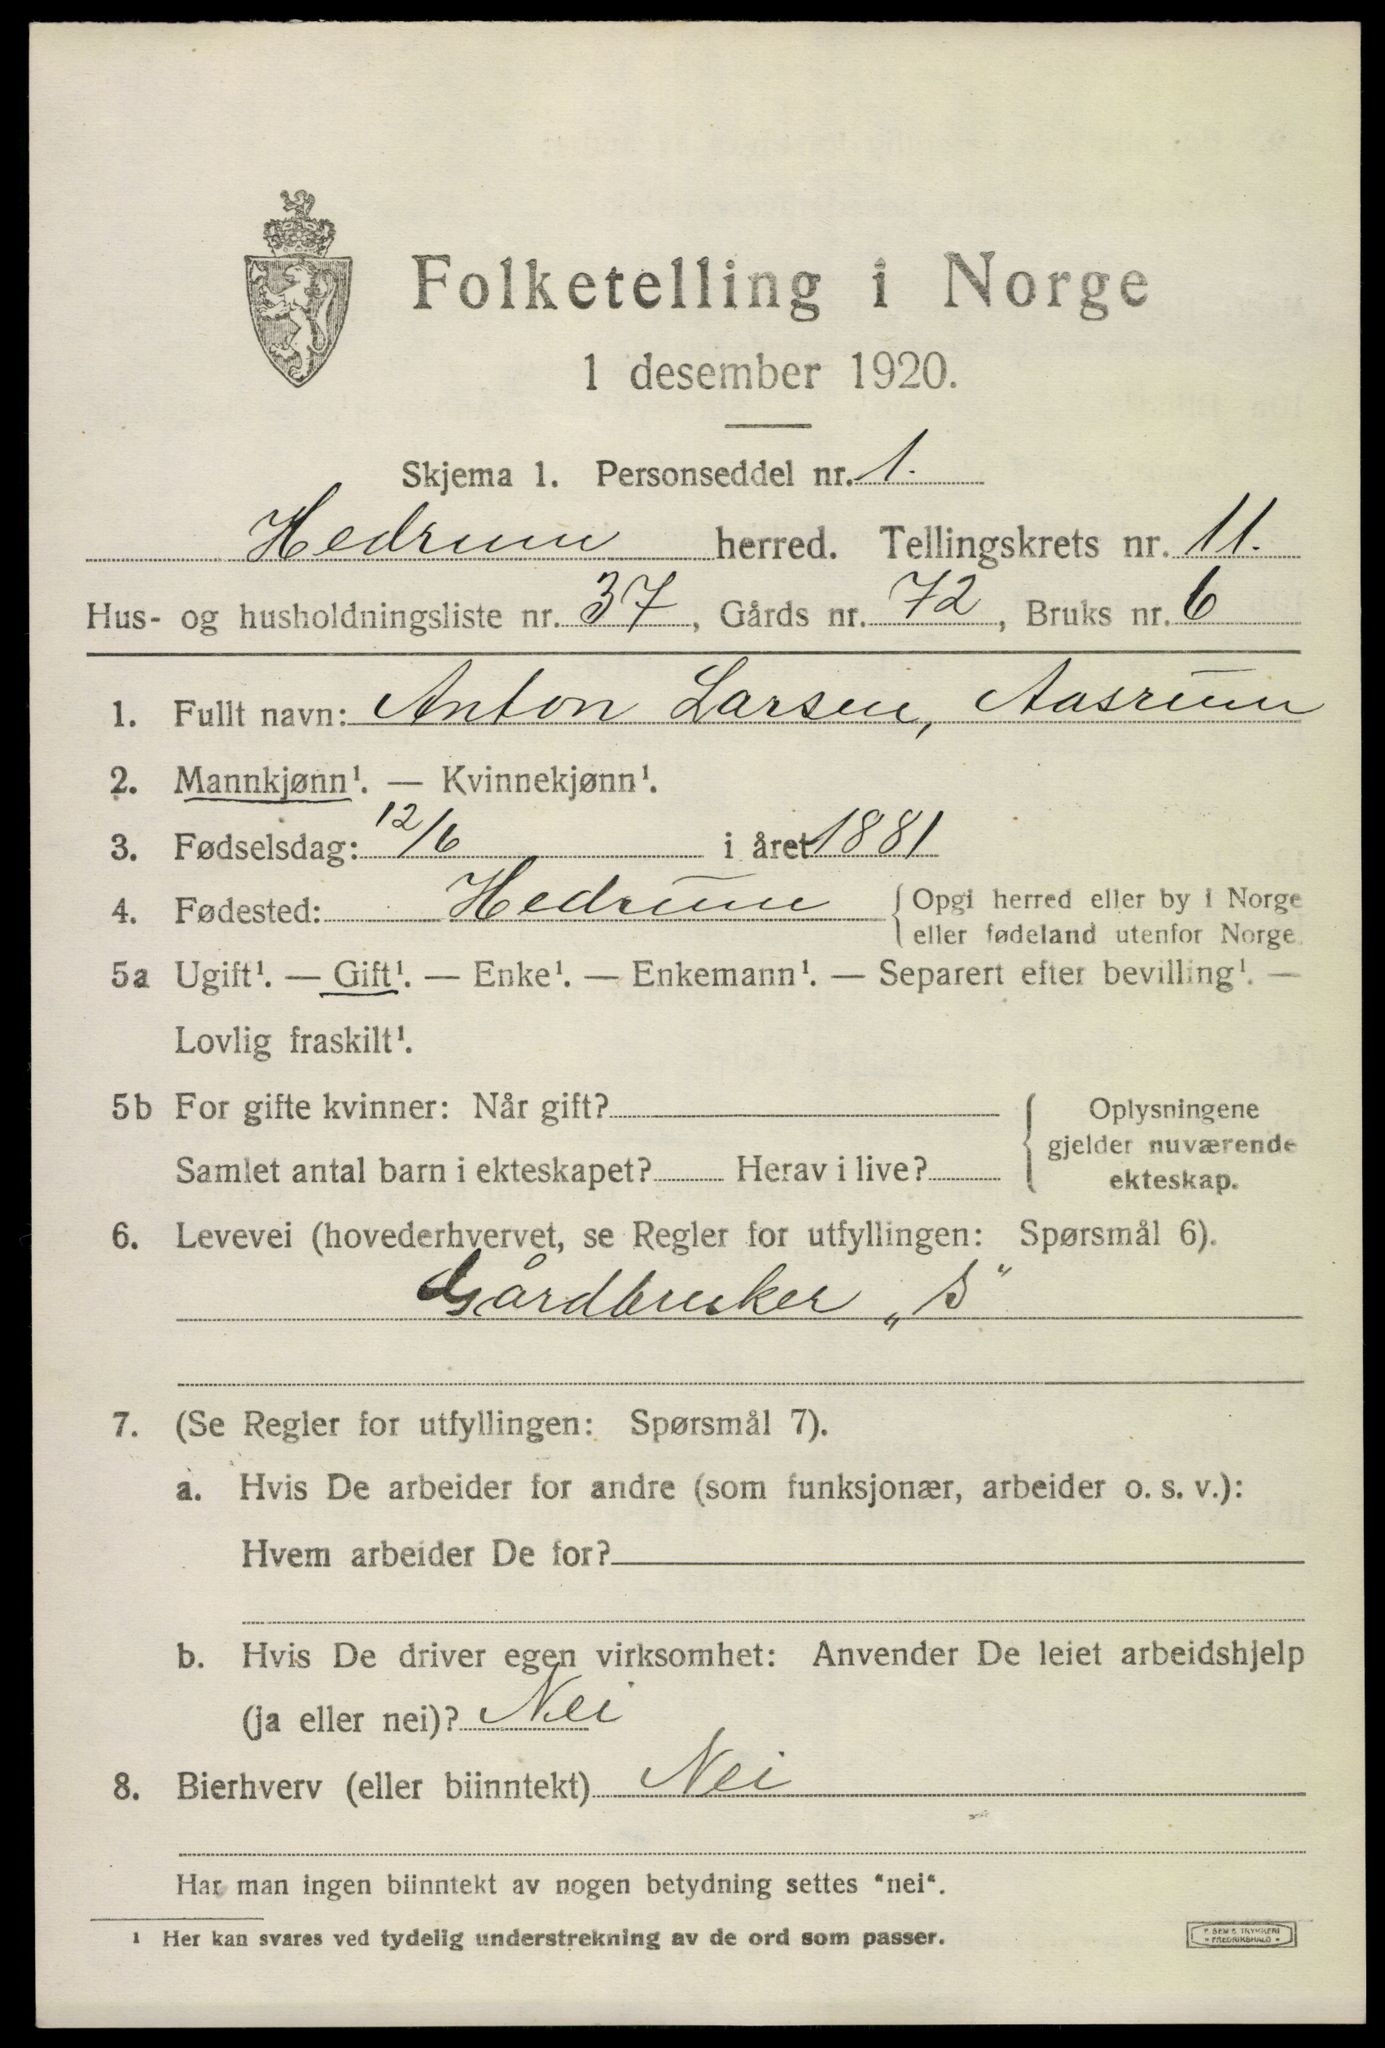 Folketelling i Norge
1 desember 1920.
Skjema 1. Personseddel nr. 1.
Hedrum herred. Tellingskrets nr. 11.
Hus- og husholdningsliste nr. 37, Gårds nr. 72, Bruks nr. 6
1. Fullt navn: Anton Larsen, Aasrum
2. Mannkjønn¹. — Kvinnekjønn¹.
3. Fødselsdag: 12/6 i året 1881
4. Fødested: Hedrum { Opgi herred eller by i Norge
eller fødeland utenfor Norge.
5a Ugift¹. — Gift¹. — Enke¹. — Enkemann¹. — Separert efter bevilling¹. —
Lovlig fraskilt¹.
5b For gifte kvinner: Når gift?
Samlet antal barn i ekteskapet? Herav i live?
{ Oplysningene
gjelder nuværende
ekteskap.
6. Levevei (hovederhvervet, se Regler for utfyllingen: Spørsmål 6).
Gårdbruker „S"
7. (Se Regler for utfyllingen: Spørsmål 7).
a. Hvis De arbeider for andre (som funksjonær, arbeider o. s. v.):
Hvem arbeider De for?
b. Hvis De driver egen virksomhet: Anvender De leiet arbeidshjelp
(ja eller nei)? Nei
8. Bierhverv (eller biinntekt) Nei
Har man ingen biinntekt av nogen betydning settes "nei".
¹ Her kan svares ved tydelig understrekning av de ord som passer.
E. SEMS TRYKKERI
FREDRIKSHALD